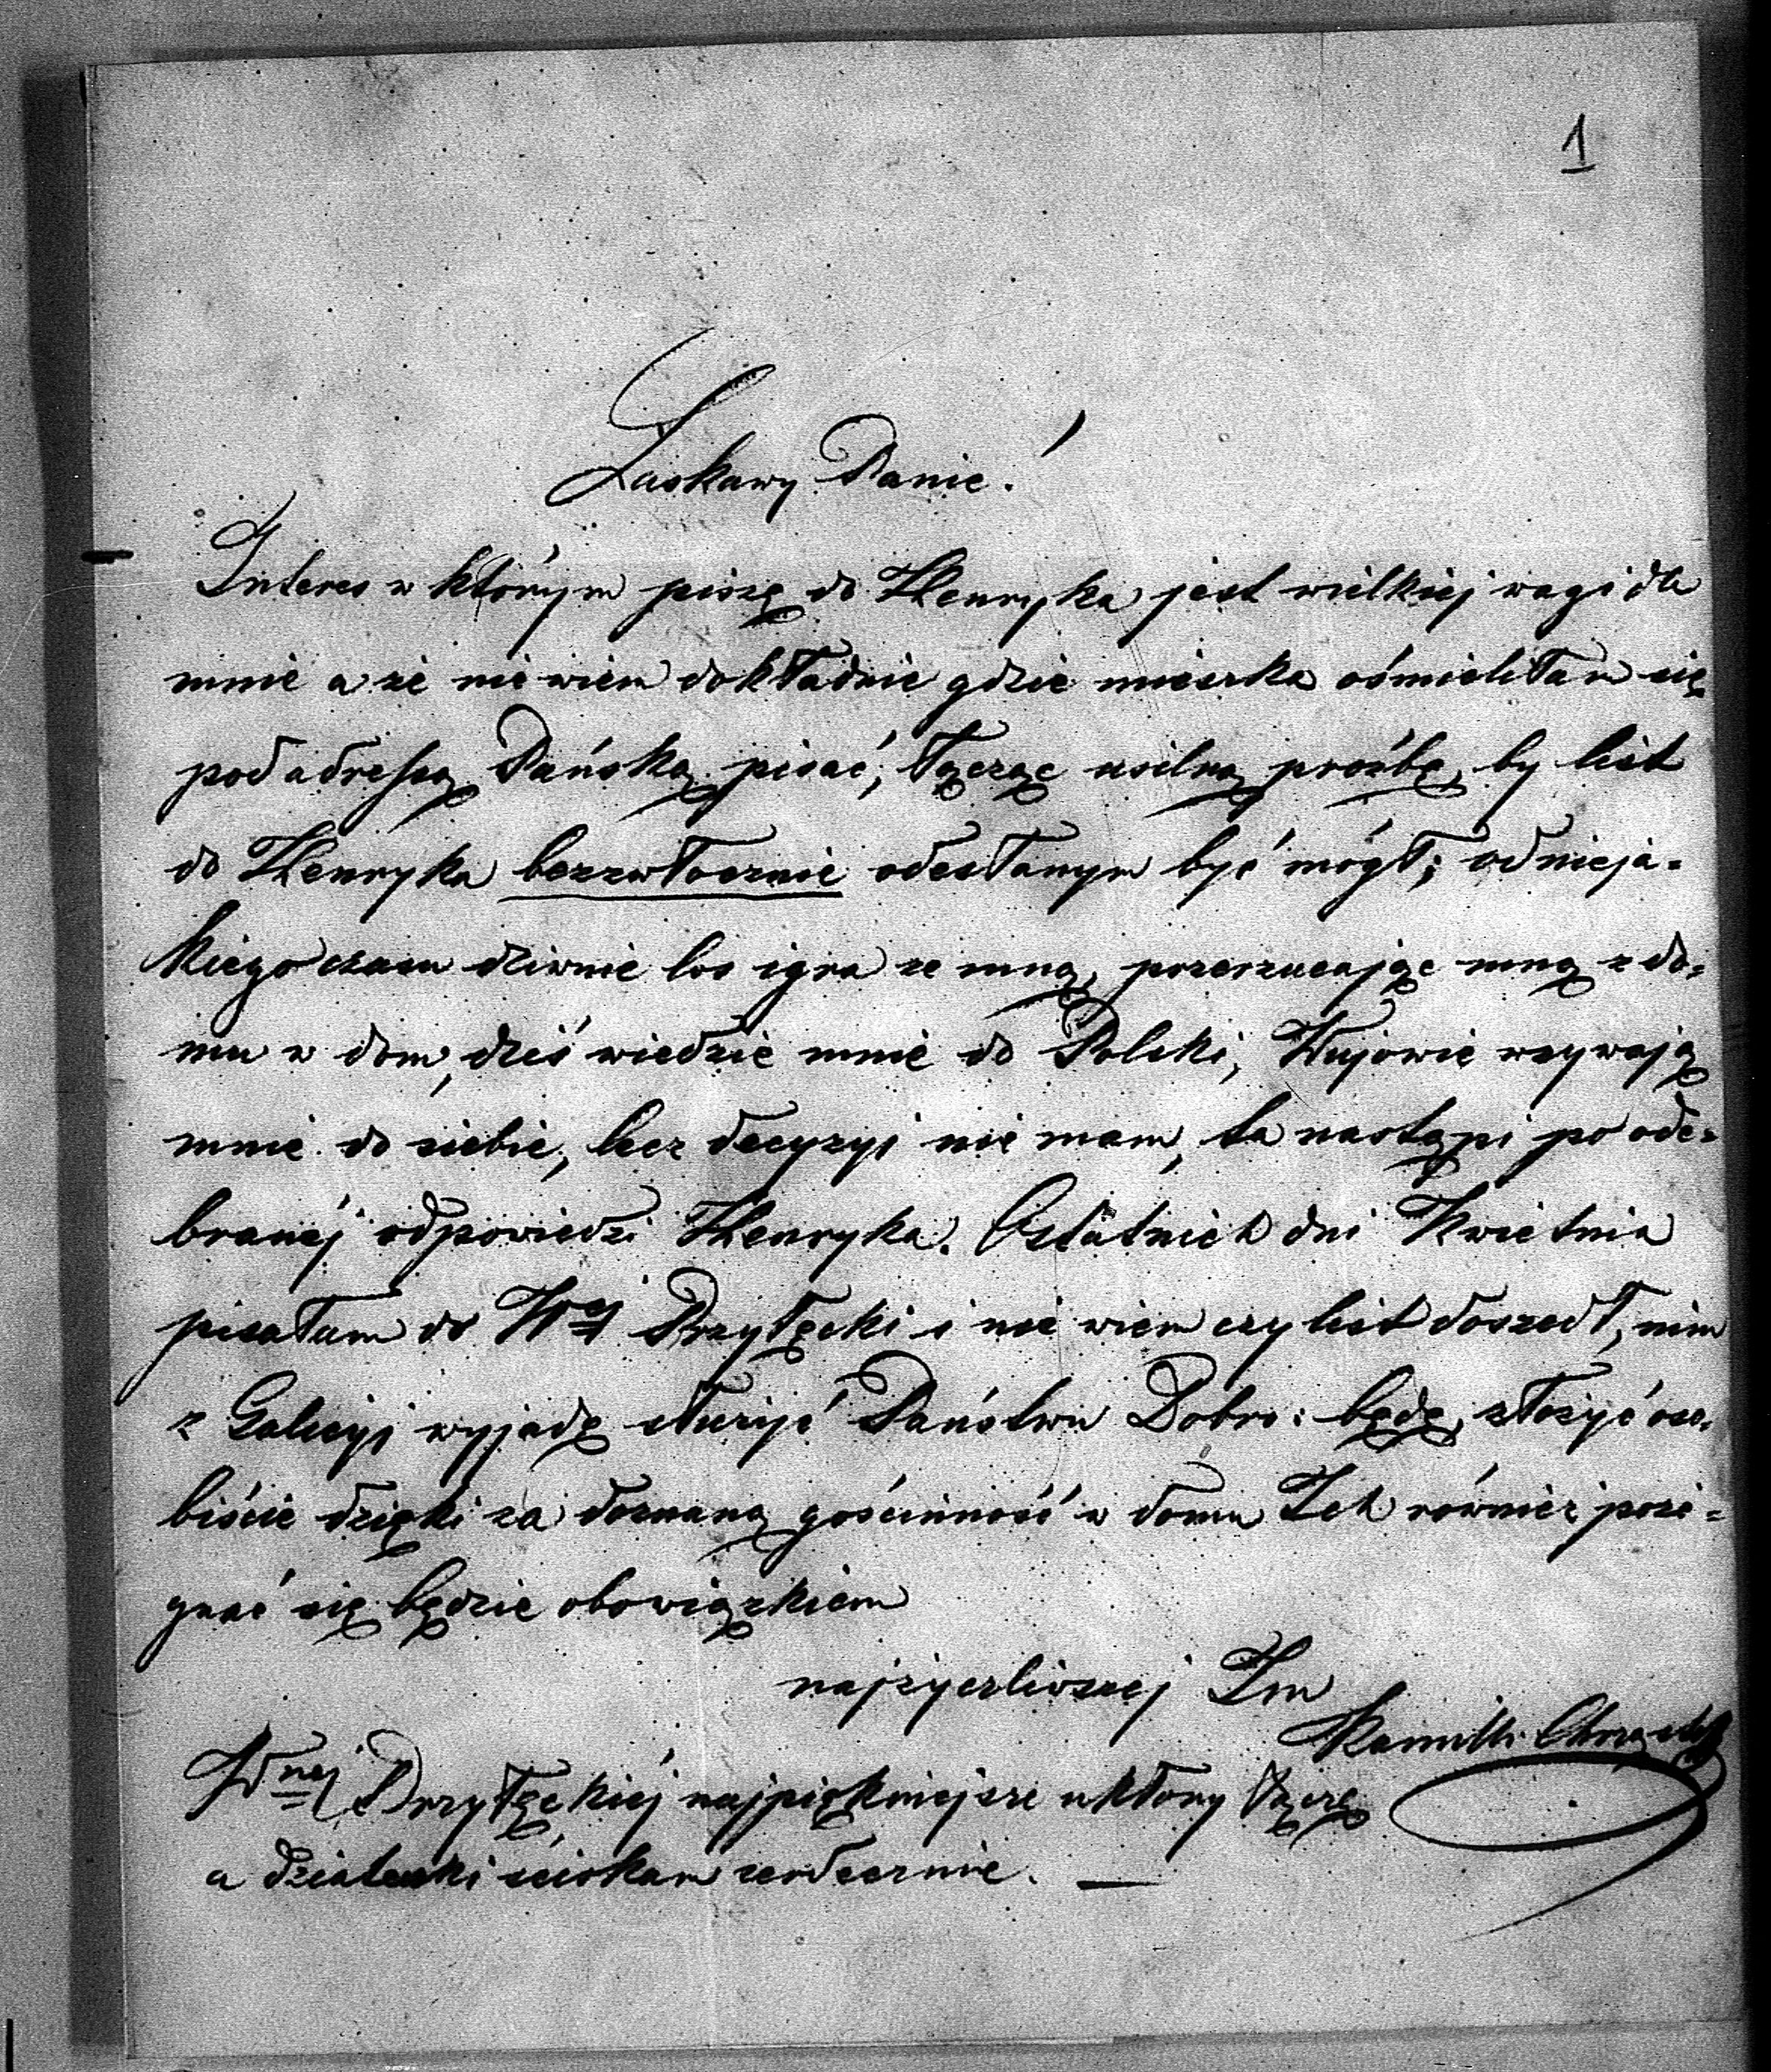 1
Łaskawy Panie!
Interes w którym piszę do Henryka jest wielkiej wagi dla
mnie a że nie wiem dokładnie gdzie mieszka ośmieliłam się
pod adresą Pańską pisać, łącząc usilną prośbę, by list
do Henryka bezzwłocznie odesłanym być mógł; od nieja=
kiego czasu dziwnie los igra ze mną, przerzucając mną z do=
mu w dom, dziś wiedzie mnie do Polski, Wujowie wzywają
mnie do siebie, lecz decyzyi nie mam, ta nastąpi po ode=
branej odpowiedzi Henryka. Ostatnich dni Kwietnia
pisałam do Przyłęcki i nie wiem czy list doszedł, nim
z Galicyi wyjadę służyć Państwu Dobro: będę, złożyć oso=
biście dzięki za doznaną gościnność w domu Ich również poże=
gnać się będzie obowiązkiem
najżyczliwszej Im
Kamilli
Przyłęckiej najpiękniejsze ukłony łączę
a dziateczki ściskam serdecznie. —